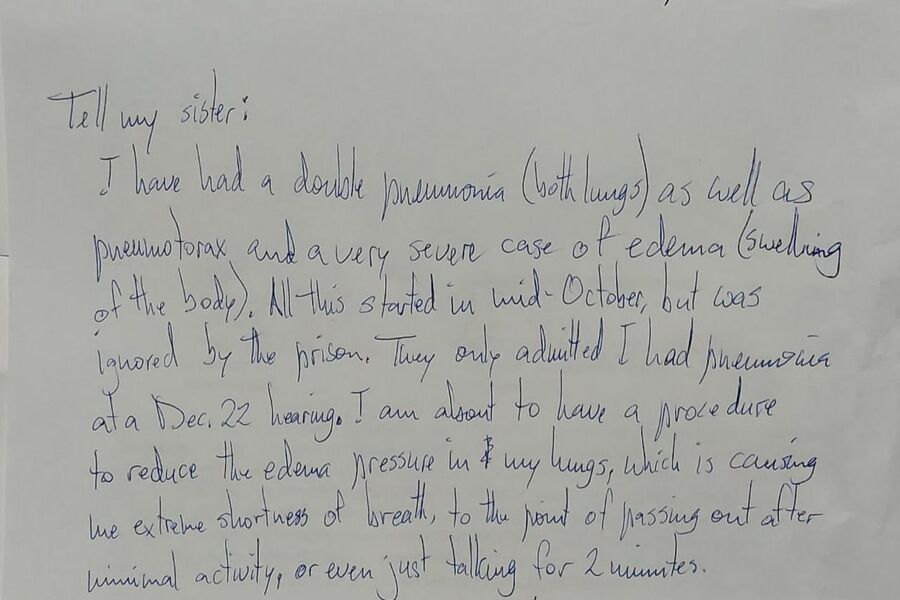 Tell my sister:
I have had a double pneumonia (both lungs) as well as
pneumotorax and a very severe case of edema (swelling
of the body). All this started in mid-October, but was
ignored by the prison. They only admitted I had pneumonia
at a Dec. 22 hearing. I am about to have a procedure
to reduce the edema pressure in my lungs, which is causing
me extreme shortness of breath, to the point of passing out after
minimal activity, or even just talking for 2 minutes.